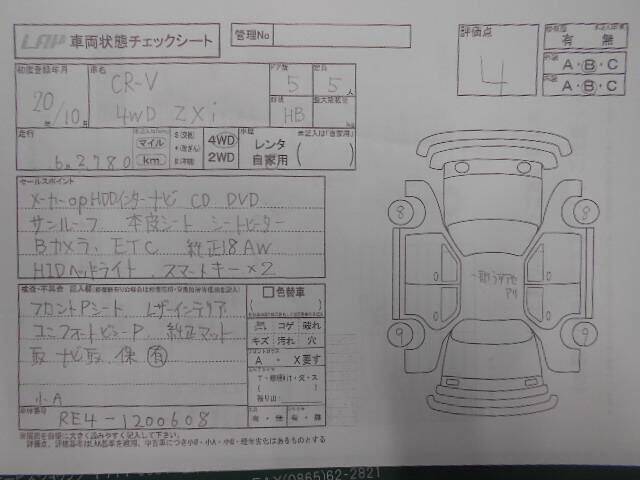 LAP 車両状態チェックシート
管理No
評価点
4
有 無
A・B・C
A・B・C
初度登録年月
20年/10月
車名
CR-V
4WD ZXi
ドア数
5
定員
5人
HB
走行
6.2780
マイル
km
4WD
2WD
レンタ
自家用
※記入は「自家用」
セールスポイント
メーカーop HDDインターナビ CD DVD
サンルーフ 本皮シート シートヒーター
Bカメラ、ETC 純正18AW
HIDヘッドライト、スマートキー×2
色替車
フロントPシート レザーインテリア
コンフォートビューP 純正マット
取 ナビ取 保 有
小A
コゲ 破れ
キズ 汚れ 穴
A・X要す
有・無
有・無
車体番号
RE4-1200608
8
8
9
9
一部コデアセ
アリ
FAX(0865)62-2821